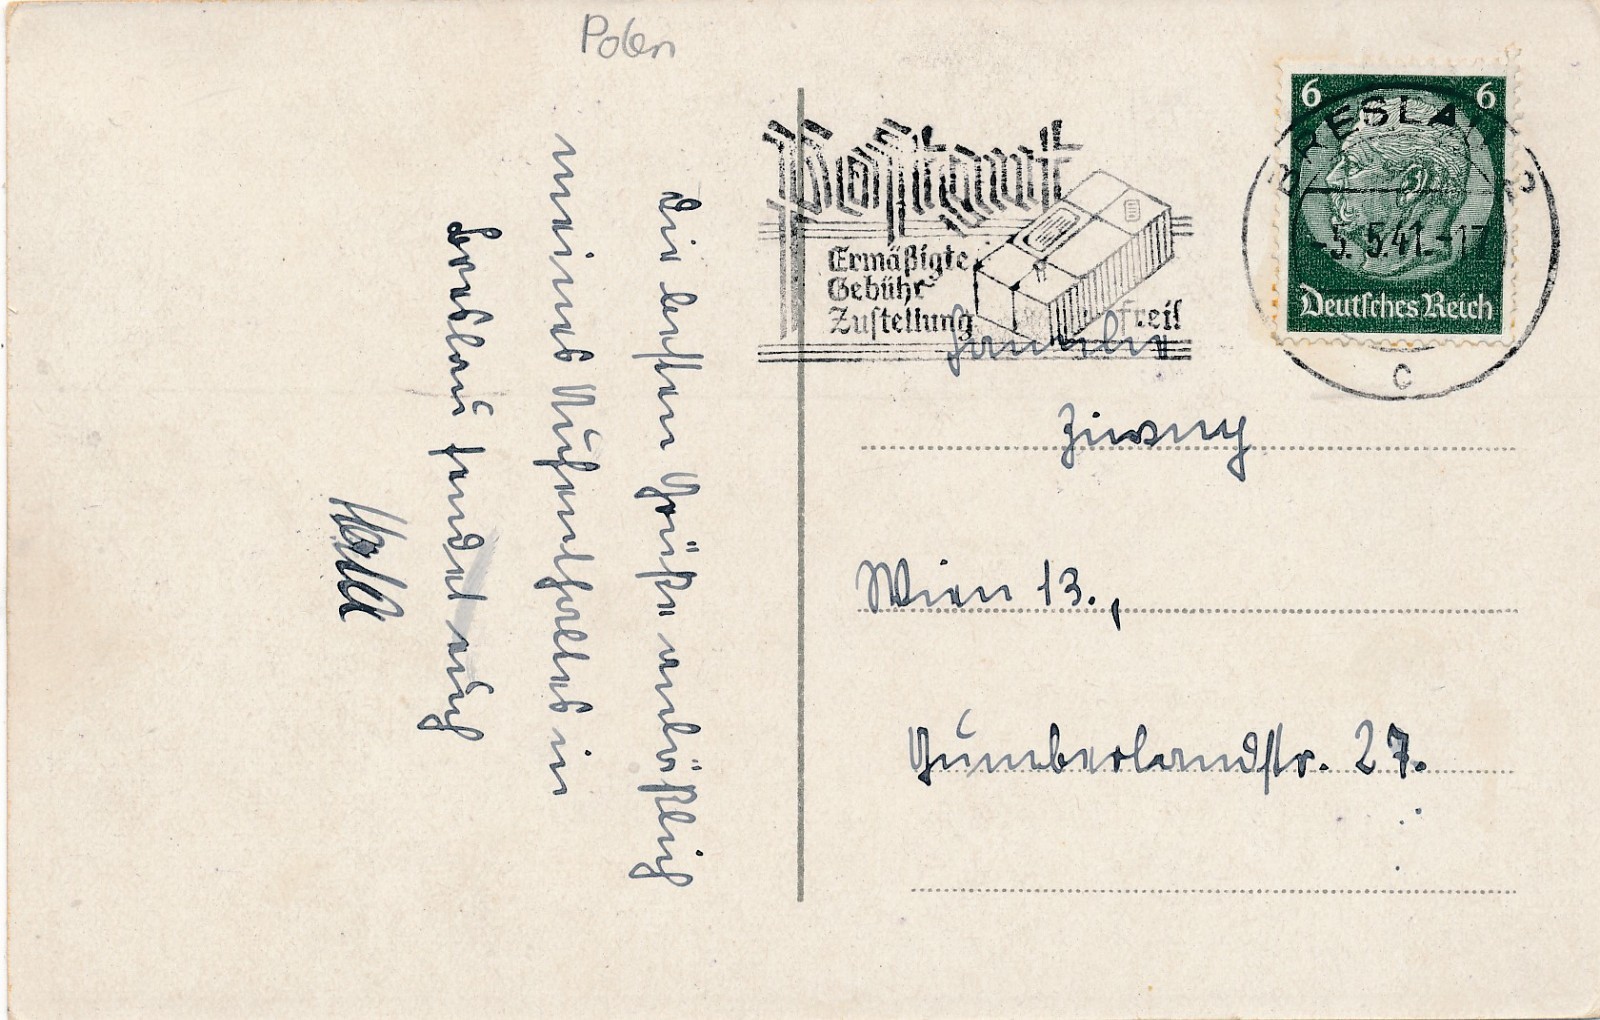 Polen
Die besten Grüße anläßlich
meines Aufenthaltes in
Breslau sendet euch
Postgut
Ermäßigte
Gebühr
Zustellung frei!
6 6
Deutsches Reich
BRESLAU 2
-5.5.41.-17
c
Familie
Wien 13.,
Cumberlandstr. 27.